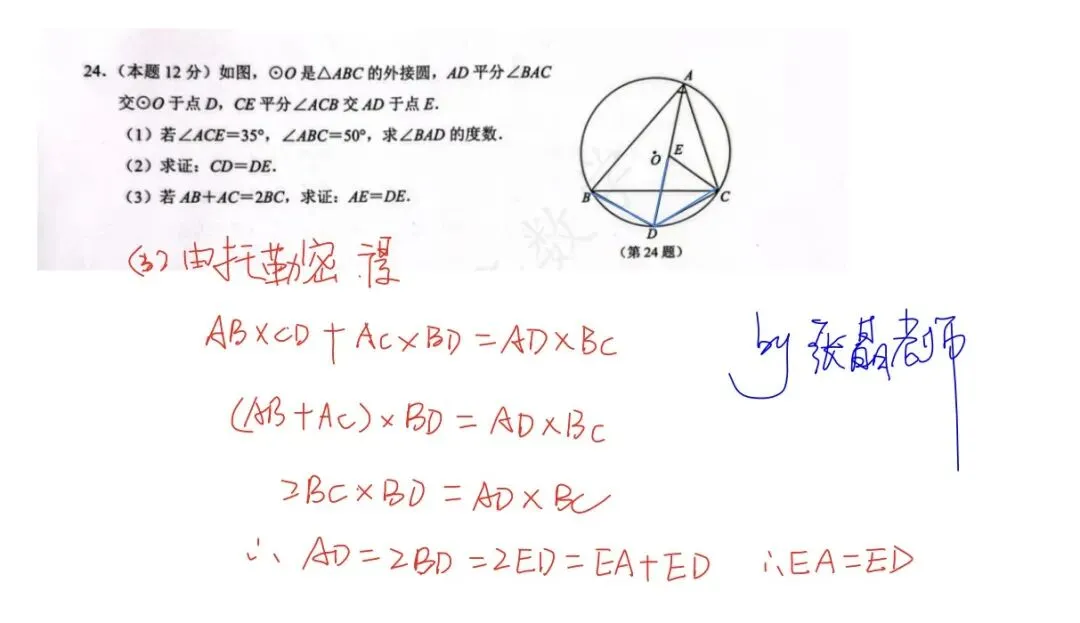 24.(本题12分)如图,⊙O是△ABC的外接圆,AD平分∠BAC
交⊙O于点D,CE平分∠ACB交AD于点E.
(1)若∠ACE=35°,∠ABC=50°,求∠BAD的度数.
(2)求证:CD=DE.
(3)若AB+AC=2BC,求证:AE=DE.
A
E
O
B
C
D
(第24题)
数学
(3)由托勒密得
AB×CD+AC×BD=AD×BC
(AB+AC)×BD=AD×BC
2BC×BD=AD×BC
∴AD=2BD=2ED=EA+ED ∴EA=ED
by张晶老师